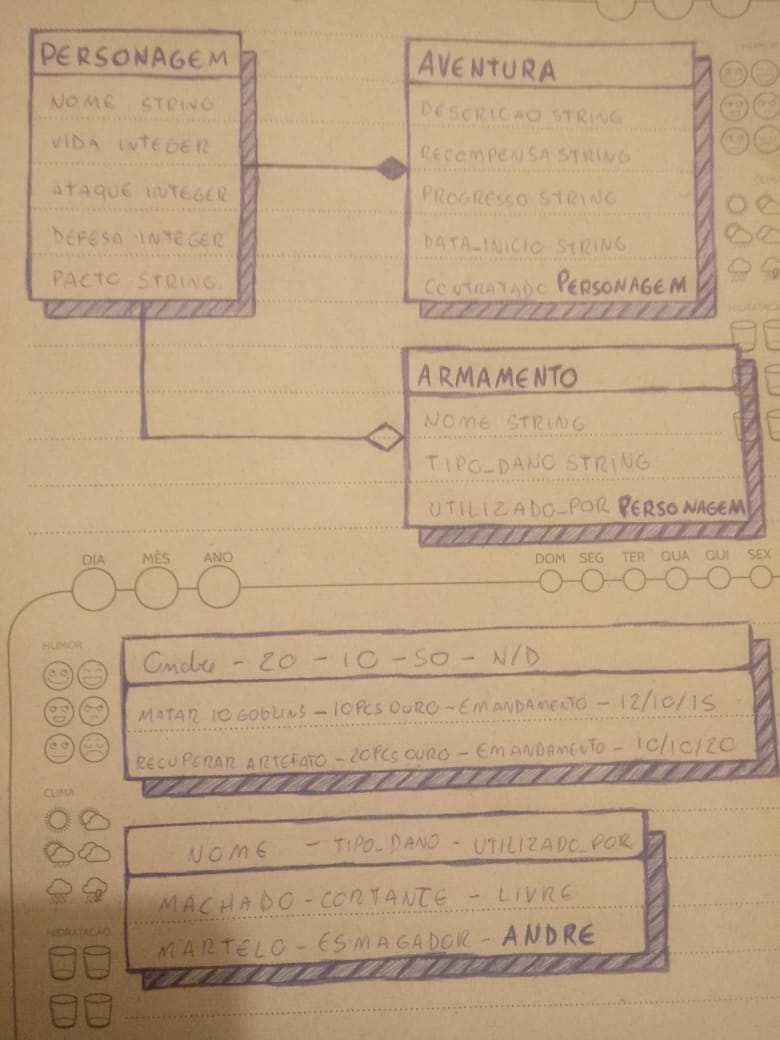 PERSONAGEM
NOME STRING
VIDA INTEGER
ATAQUE INTEGER
DEFESA INTEGER
PACTO STRING
AVENTURA
DESCRICAO STRING
RECOMPENSA STRING
PROGRESSO STRING
DATA_INICIO STRING
CONTRATADO PERSONAGEM
HUMOR
CLIMA
HIDRATAÇÃO
ARMAMENTO
NOME STRING
TIPO_DANO STRING
UTILIZADO_POR PERSONAGEM
DIA MÊS ANO DOM SEG TER QUA QUI SEX
HUMOR
Andre - 20 - 10 - 50 - N/D
MATAR 10 GOBLINS - 10PCS OURO - EM ANDAMENTO - 12/10/15
RECUPERAR ARTEFATO - 20PCS OURO - EM ANDAMENTO - 10/10/20
CLIMA
NOME - TIPO_DANO - UTILIZADO_POR
MACHADO - CORTANTE - LIVRE
HIDRATAÇÃO
MARTELO - ESMAGADOR - ANDRE